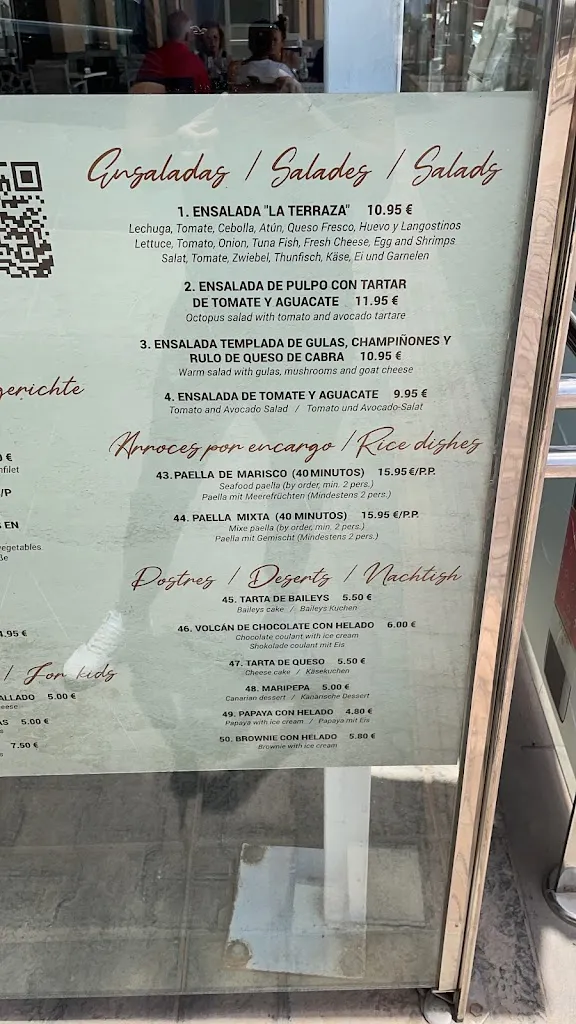 Ensaladas / Salades / Salads
1. ENSALADA "LA TERRAZA" 10.95 €
Lechuga, Tomate, Cebolla, Atún, Queso Fresco, Huevo y Langostinos
Lettuce, Tomato, Onion, Tuna Fish, Fresh Cheese, Egg and Shrimps
Salat, Tomate, Zwiebel, Thunfisch, Käse, Ei und Garnelen
2. ENSALADA DE PULPO CON TARTAR
DE TOMATE Y AGUACATE 11.95 €
Octopus salad with tomato and avocado tartare
3. ENSALADA TEMPLADA DE GULAS, CHAMPIÑONES Y
RULO DE QUESO DE CABRA 10.95 €
Warm salad with gulas, mushrooms and goat cheese
4. ENSALADA DE TOMATE Y AGUACATE 9.95 €
Tomato and Avocado Salad / Tomato und Avocado-Salat
Arroces por encargo / Rice dishes
43. PAELLA DE MARISCO (40 MINUTOS) 15.95 €/P.P.
Seafood paella (by order, min. 2 pers.)
Paella mit Meerefrüchten (Mindestens 2 pers.)
44. PAELLA MIXTA (40 MINUTOS) 15.95 €/P.P.
Mixe paella (by order, min. 2 pers.)
Paella mit Gemischt (Mindestens 2 pers.)
Postres / Deserts / Nachtish
45. TARTA DE BAILEYS 5.50 €
Baileys cake / Baileys Kuchen
46. VOLCÁN DE CHOCOLATE CON HELADO 6.00 €
Chocolate coulant with ice cream
Shokolade coulant mit Eis
47. TARTA DE QUESO 5.50 €
Cheese cake / Käsekuchen
48. MARIPEPA 5.00 €
Canarian dessert / Kanarische Dessert
49. PAPAYA CON HELADO 4.80 €
Papaya with ice cream / Papaya mit Eis
50. BROWNIE CON HELADO 5.80 €
Brownie with ice cream
gerichte
€
nfilet
/P
EN
vegetables
ße
4.95 €
/ For kids
ALLADO 5.00 €
eese
AS 5.00 €
7.50 €